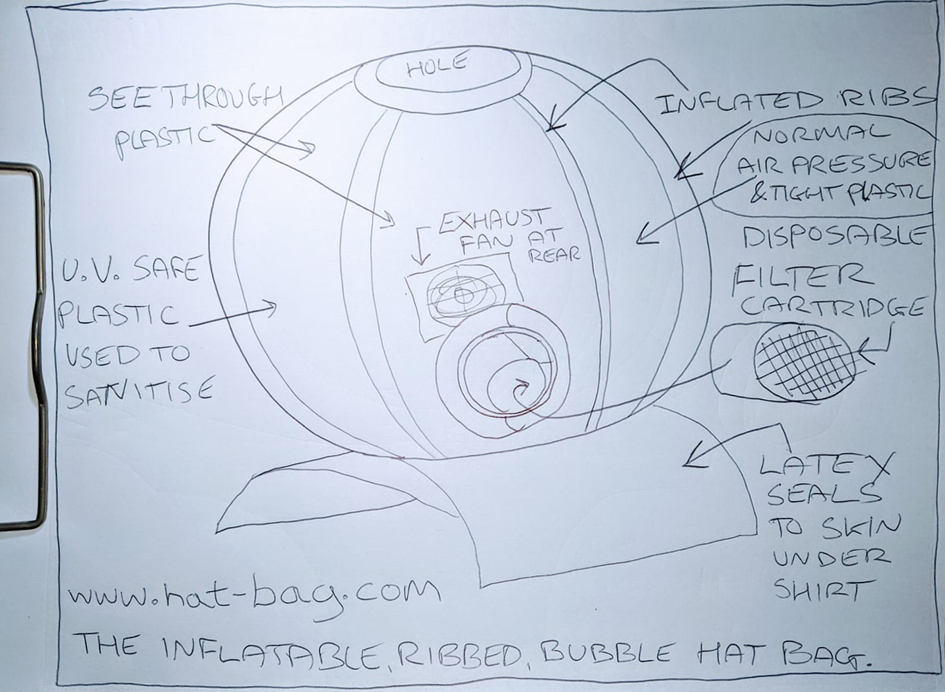 HOLE
SEE THROUGH
PLASTIC
INFLATED RIBS
NORMAL
AIR PRESSURE
& TIGHT PLASTIC
EXHAUST
FAN AT
REAR
DISPOSABLE
FILTER
CARTRIDGE
U.V. SAFE
PLASTIC
USED TO
SANITISE
LATEX
SEALS
TO SKIN
UNDER
SHIRT
www.hat-bag.com
THE INFLATABLE, RIBBED, BUBBLE HAT BAG.